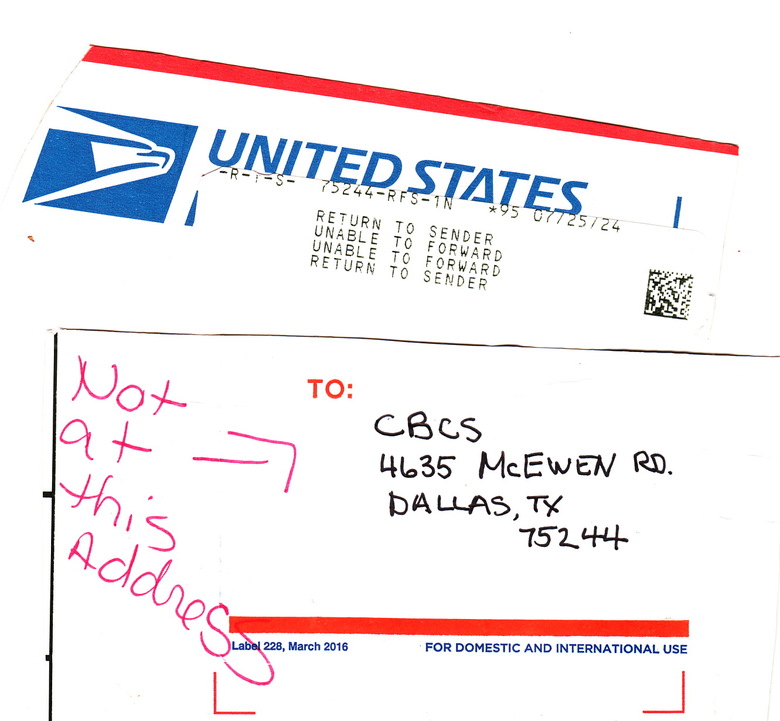 UNITED STATES
-R-T-S- 75244-RFS-1N *95 07/25/24
RETURN TO SENDER
UNABLE TO FORWARD
UNABLE TO FORWARD
RETURN TO SENDER
Not
at
this
Address
TO:
CBCS
4635 McEWEN RD.
DALLAS, TX
75244
Label 228, March 2016 FOR DOMESTIC AND INTERNATIONAL USE